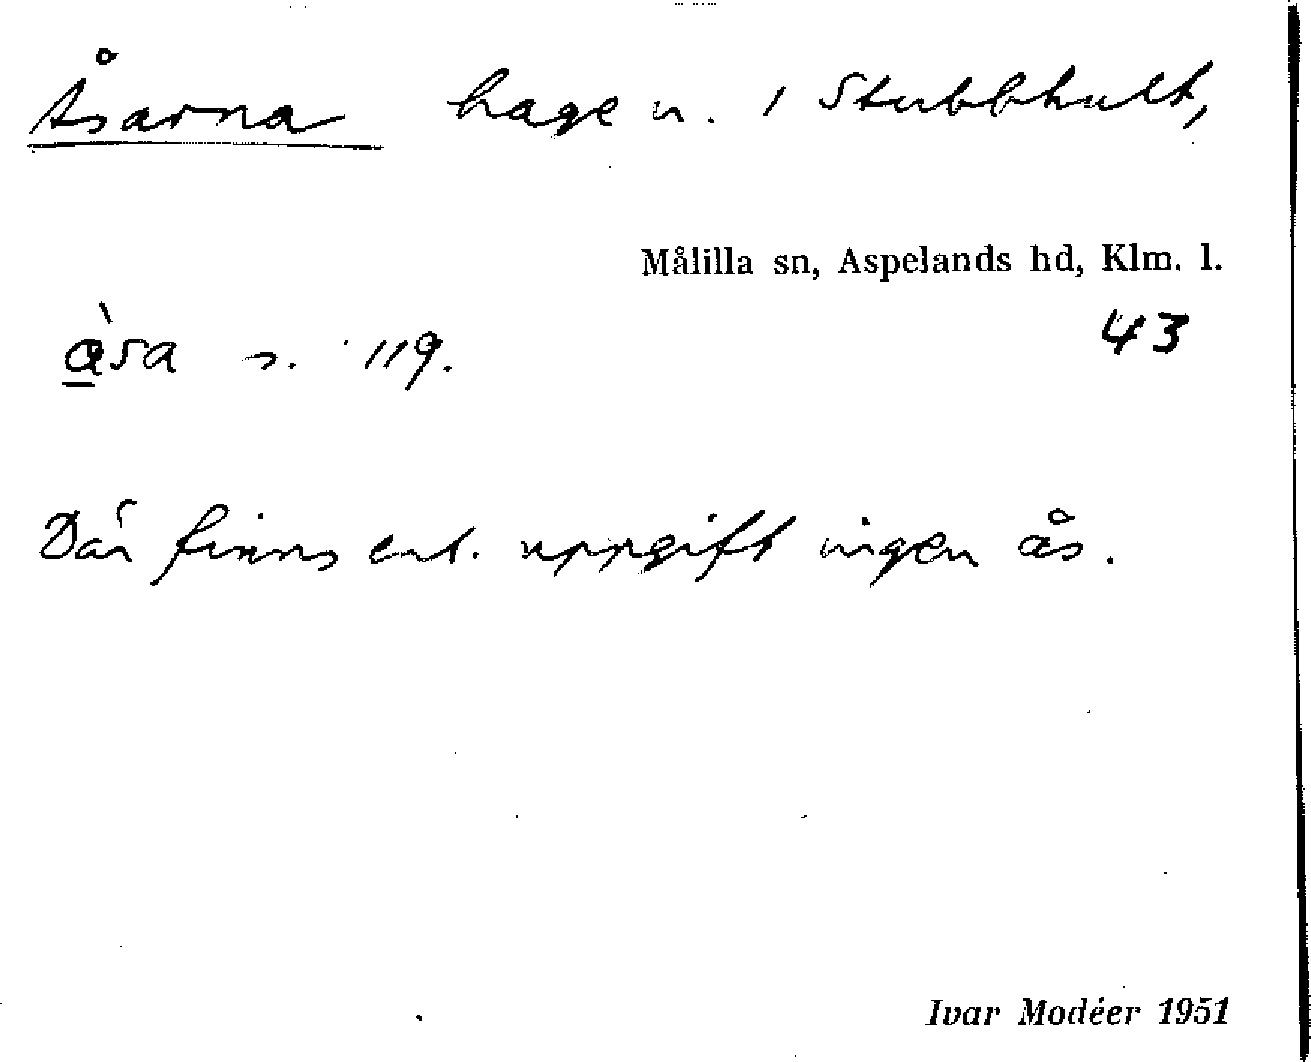 Åsarna hage n. i Stubbhult,
Målilla sn, Aspelands hd, Klm. l.
43
à̲sa s. 119.
Där finns enl. uppgift ingen ås.
Ivar Modéer 1951